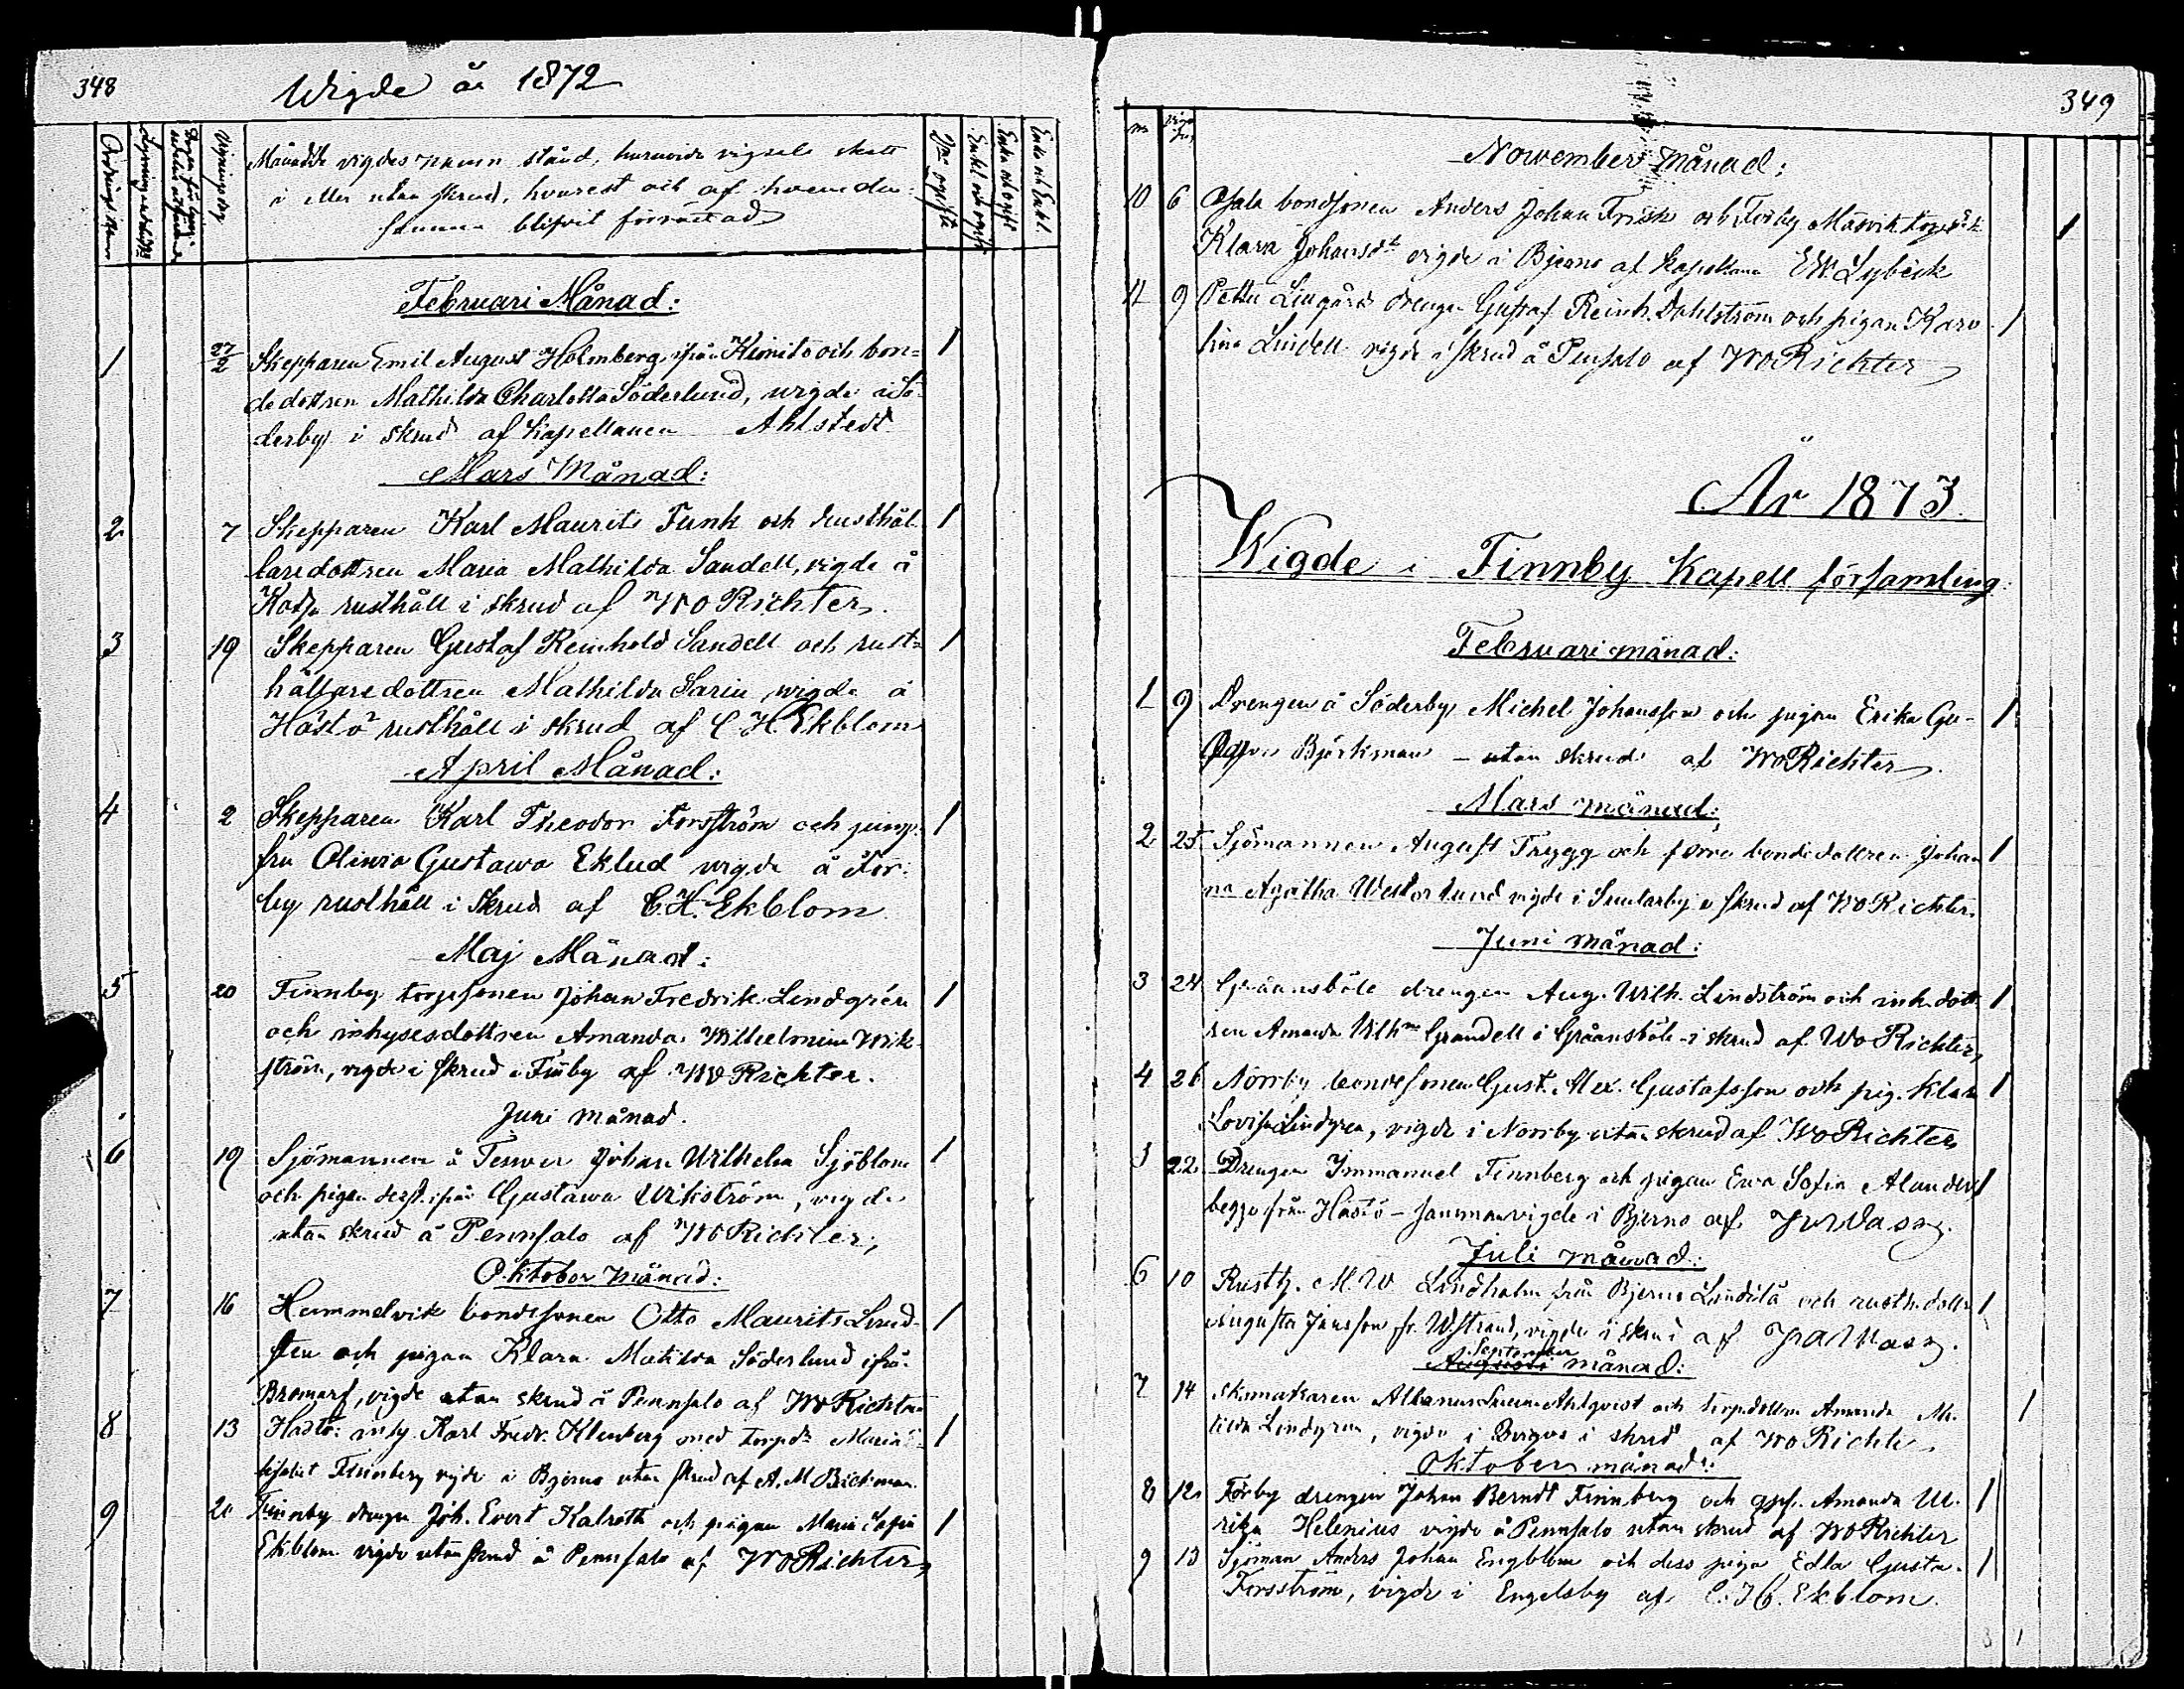 348
Wigde år 1872
Ordnings
Vigningsdag
vigdes namn stånd, huruvida vigseln skett
i eller utan skrud, hvarest och af hvem den-
samma blifvit förrättad
Februari Månad:
1 27/2 Skepparen Emil August Holmberg ifrån Kimito och bon= 1
dedottren Mathilda Charlotta Söderlund, wigde å Sö-
derby i skrud af Kapellanen Ahlstedt
Mars Månad:
2 7 Skepparen Karl Maurits Funk och rusthål- 1
laredottren Maria Mathilda Sandell, vigde å
rusthåll i skrud af WO Richter.
3 19 Skepparen Gustaf Reinhold Sandell och rust- 1
hållaredottren Mathilda Sarin, wigde å
Hästö rusthåll i skrud af C H Ekblom
April Månad:
4 2 Skepparen Karl Theodor Forsström och jung- 1
fru Oliwia Gustawa Eklud wigde å För-
by rusthåll i skrud af C.H. Ekblom
Maj Månad:
5 20 Finnby torpsonen Johan Fredrik Lindgrén 1
och inhysesdottren Amanda Wilhelmina Wik-
ström, vigde i skrud i Finby af WO Richter.
Juni månad.
6 19 Sjömannen å Johan Wilhelm Sjöblom 1
och pigan derst. ifrån Gustawa Wikström, vigde
utan skrud å Pennsalo af WO Richter,
Oktober Månad:
7 16 Hammelvik bondesonen Otto Maurits Lind- 1
sten och pigan Klara Matilda Söderlund ifrån
Bromarf, vigde utan skrud å Pennsalo af WO Richter
8 13 Hästö: inhy. Karl Fredr. Klenberg med torpd. Maria 1
Finnberg vigde i Bjerno utan skrud af A. M. Bäckman.
9 20 Finnby drengen Joh. Evert Kalroth och pigan Maria Sofia 1
Ekblom vigde utan skrud å Pennsalo af WO Richter
349
November månad:
10 6 bondsonen Anders Johan Frisk och 1
Klara Johansdr vigde i Bjerno af kapellanen EW Lybeck
11 9 drengen Gustaf Reinh. Dahlström och pigan Karo- 1
lina Lindell vigde i skrud å Pensalo af WO Richter
År 1873.
Wigde i Finnby Kapell församling.
Februari månad:
1 9 Drengen å Söderby Michel Johansson och pigan Erika Gu- 1
Björkman – utan skrud af WO Richter
Mars månad:
2 25 Sjömannen August Trygg och bondedottren Johan- 1
na Agatha Westerlund vigde i skrud af WO Richter
Juni månad:
3 24 Gräånsböle drengen Aug. Wilh. Lindström och inh.dott- 1
ren Amanda Grandell i Gråånsböle i skrud af WO Richter
4 26 Norrby bondesonen Gust. Alex. Gustafsson och pig. Klara 1
Lovisa Lindgren, vigde i Norrby utan skrud af WO Richter
22 Drengen Immanuel Finnberg och pigan Ewa Sofia Alander 1
begge från Hästö – vigde i Bjerno af
Juli månad:
6 10 Rusth. M. W. Lindholm från Bjerno och rusth.dottr. 1
Augusta Jansson fr. vigde i skrud af
September
Augusti månad:
7 14 Skomakaren Ahlqvist och torp.dottren Amanda Ma- 1
tilda Lindgren, vigde i skrud af WO Richter
Oktober månad:
8 12 Förby drengen Johan Berndt Finnberg och Amanda Ul- 1
rika Helenius vigde å Pennsalo utan skrud af WO Richter
9 13 Sjöman Anders Johan Engblom och dess piga Edla Gusta. 1
Forsström, vigde i Engelsby af C. H. Ekblom.